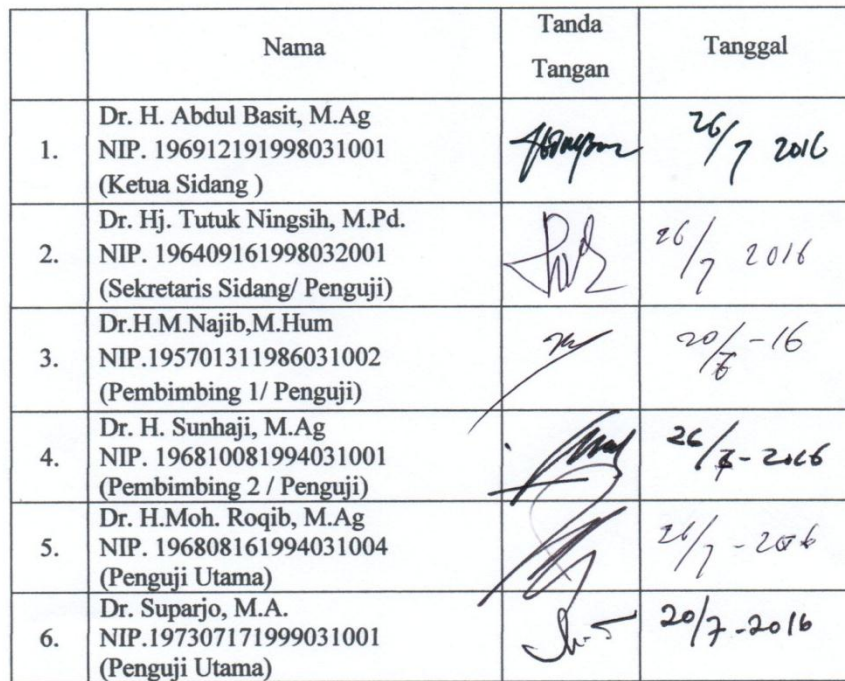 Nama
Tanda
Tangan
Tanggal
1.
Dr. H. Abdul Basit, M.Ag
NIP. 196912191998031001
(Ketua Sidang )
26/7 2016
2.
Dr. Hj. Tutuk Ningsih, M.Pd.
NIP. 196409161998032001
(Sekretaris Sidang/ Penguji)
26/7 2016
3.
Dr.H.M.Najib,M.Hum
NIP.195701311986031002
(Pembimbing 1/ Penguji)
4.
Dr. H. Sunhaji, M.Ag
NIP. 196810081994031001
(Pembimbing 2 / Penguji)
5.
Dr. H.Moh. Roqib, M.Ag
NIP. 196808161994031004
(Penguji Utama)
6.
Dr. Suparjo, M.A.
NIP.197307171999031001
(Penguji Utama)
20/7-2016